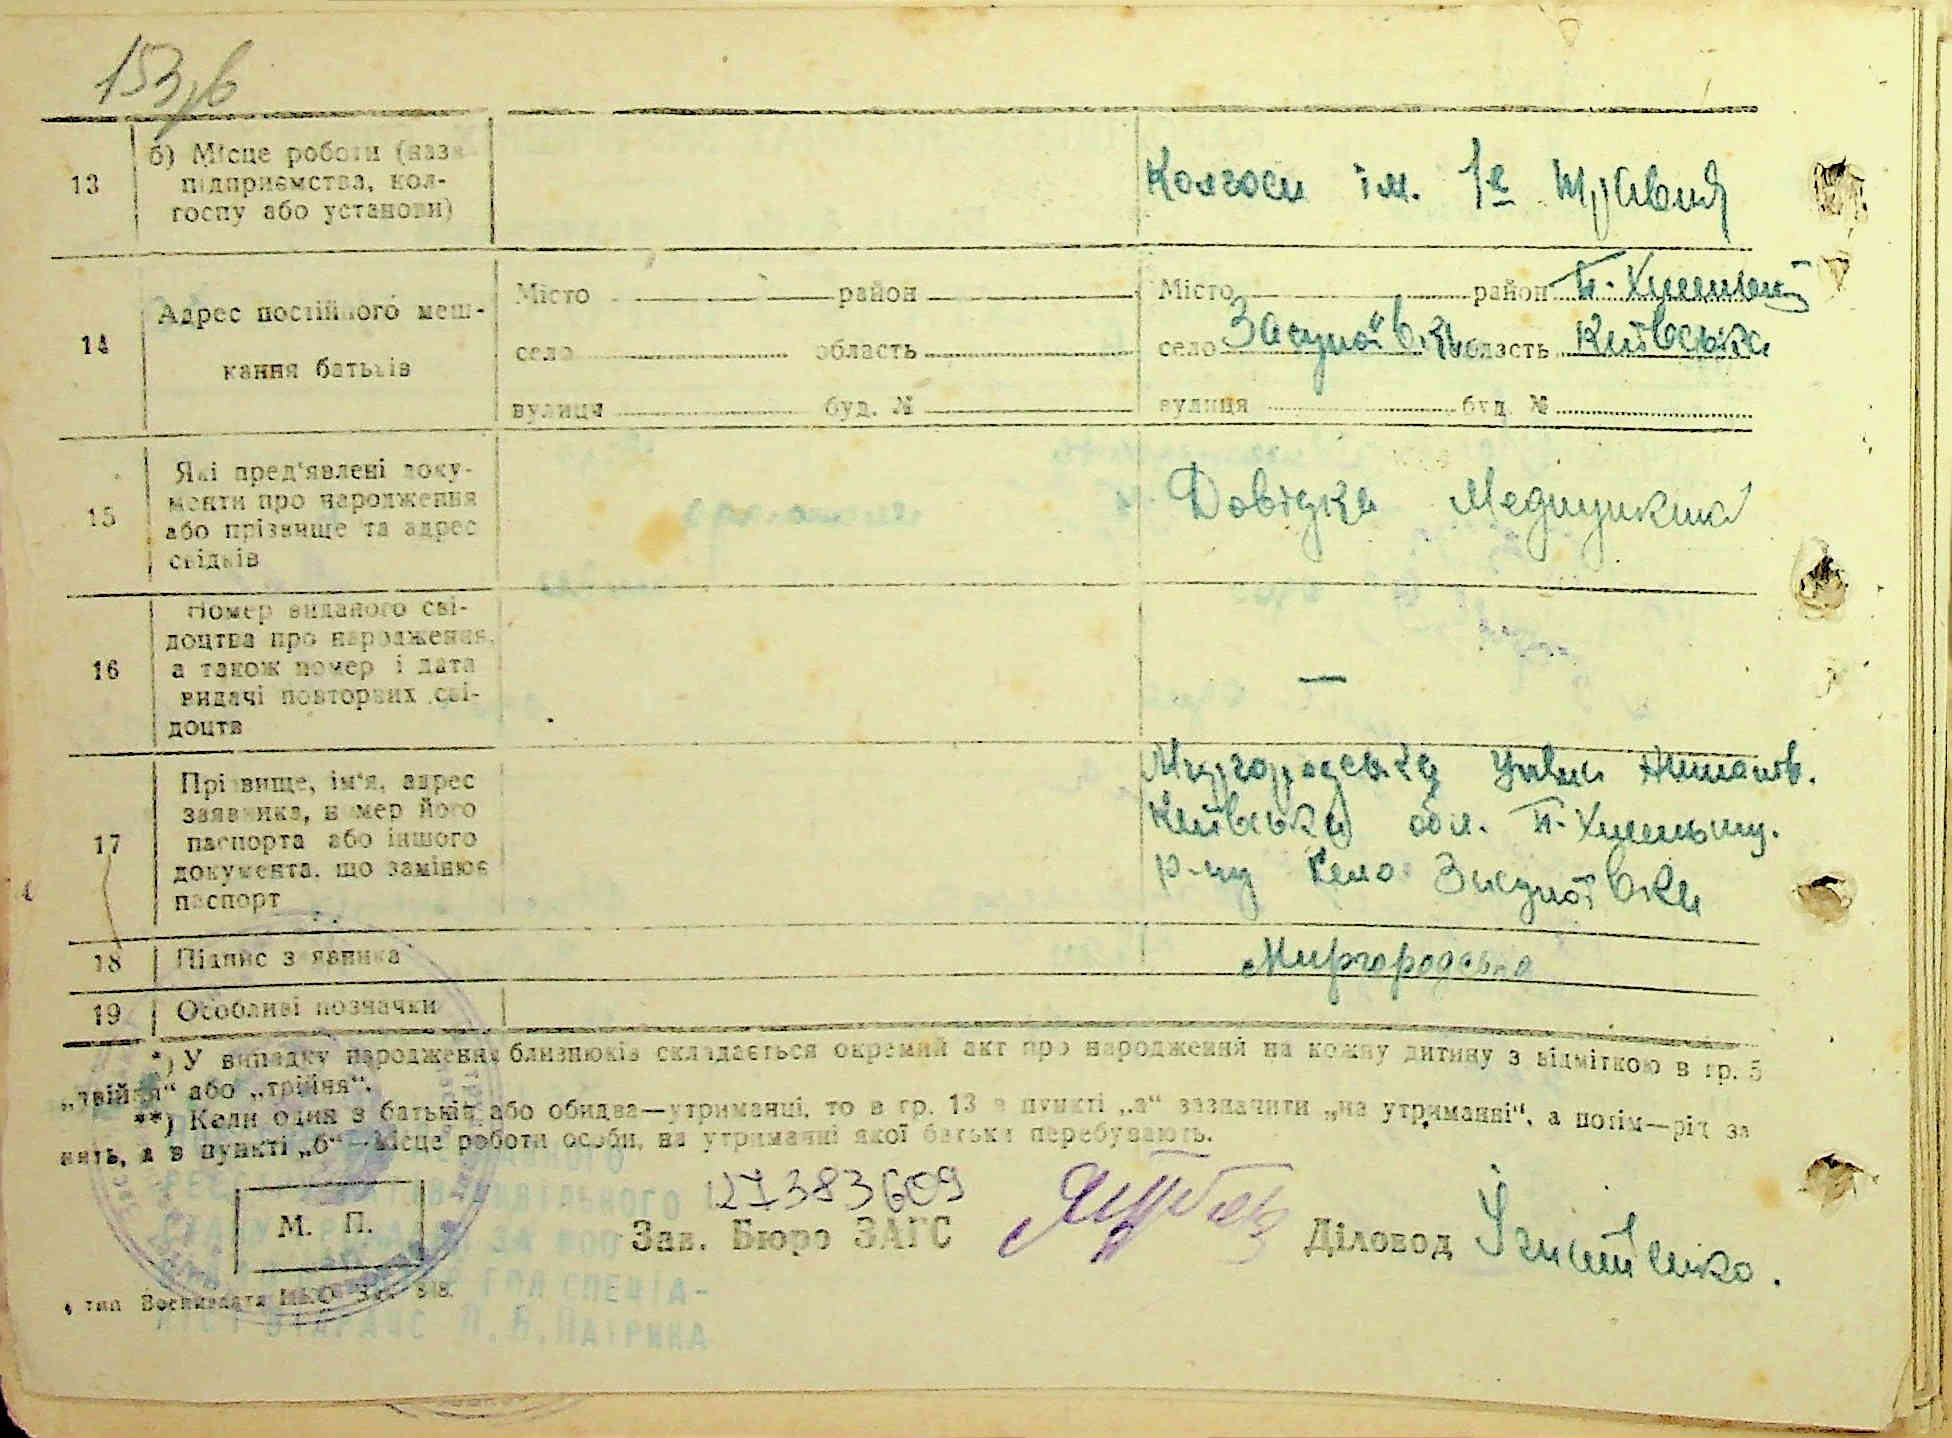 153
13
б) Місце роботи (назв
підприємства, кол-
госпу або установи)
Колгосп ім. 1е Травня
14
Адрес постійного меш-
кання батьків
Місто район
село область
вулиця буд. №
Місто район П-Хмельниц
село Засупоївка область Київська
вулиця буд. №
15
Які пред'явлені доку-
менти про народження
або прізвище та адрес
свідків
Довідка Медпункта
16
Номер виданого сві-
доцтва про народження,
а також номер і дата
видачі повторних сві-
доцтв
—
17
Прізвище, ім'я, адрес
заявника, номер його
паспорта або іншого
документа, що замінює
паспорт
Миргородська
Київська обл. П-Хмельниц.
р-ну село Засупоївка
18
Підпис заявника
Миргородська
19
Особливі позначки
*) У випадку народження близнюків складається окремий акт про народження на кожну дитину з відміткою в гр. 5
„двійня“ або „трійня“.
**) Коли один з батьків або обидва—утриманці, то в гр. 13 в пункті „а“ зазначити „на утриманні“, а потім—рід за
нять, а в пункті „б“—місце роботи особи, на утриманні якої батьки перебувають.
М. П.
27383609
Зав. Бюро ЗАГС
Діловод